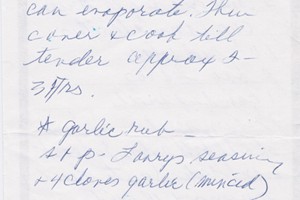 can evaporate. Then
cover & cook till
tender approx 2-
3 Hrs.
* garlic rub -
s + p - Lawrys seasoning
+ 4 cloves garlic (minced)